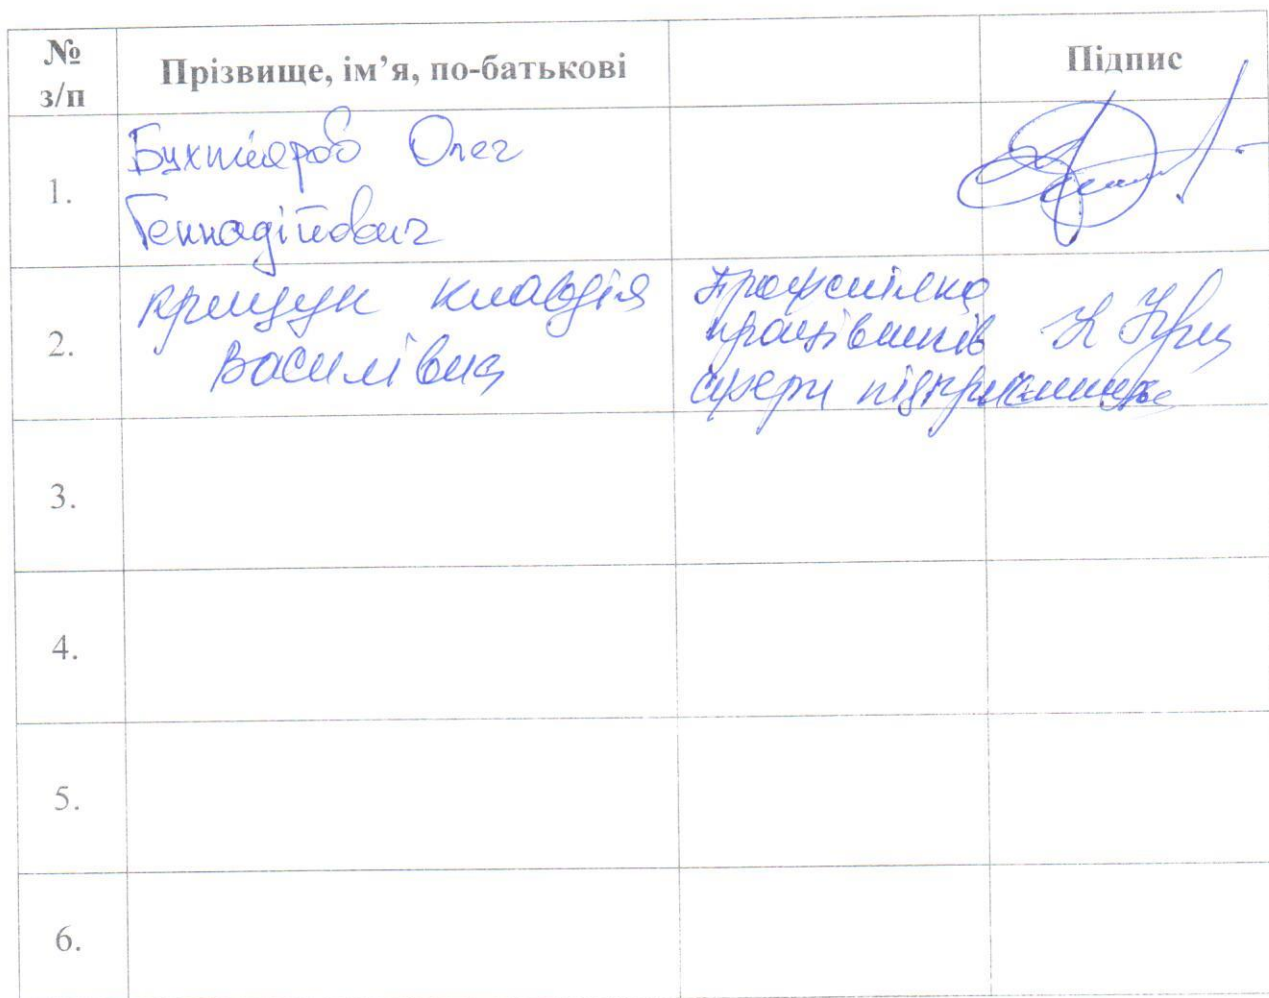 № з/п Прізвище, ім’я, по-батькові Підпис
1. Бухтіяров Олег
Геннадійович
2. Крищук Клавдія
Василівна
Профспілка
працівників
сфери
3.
4.
5.
6.